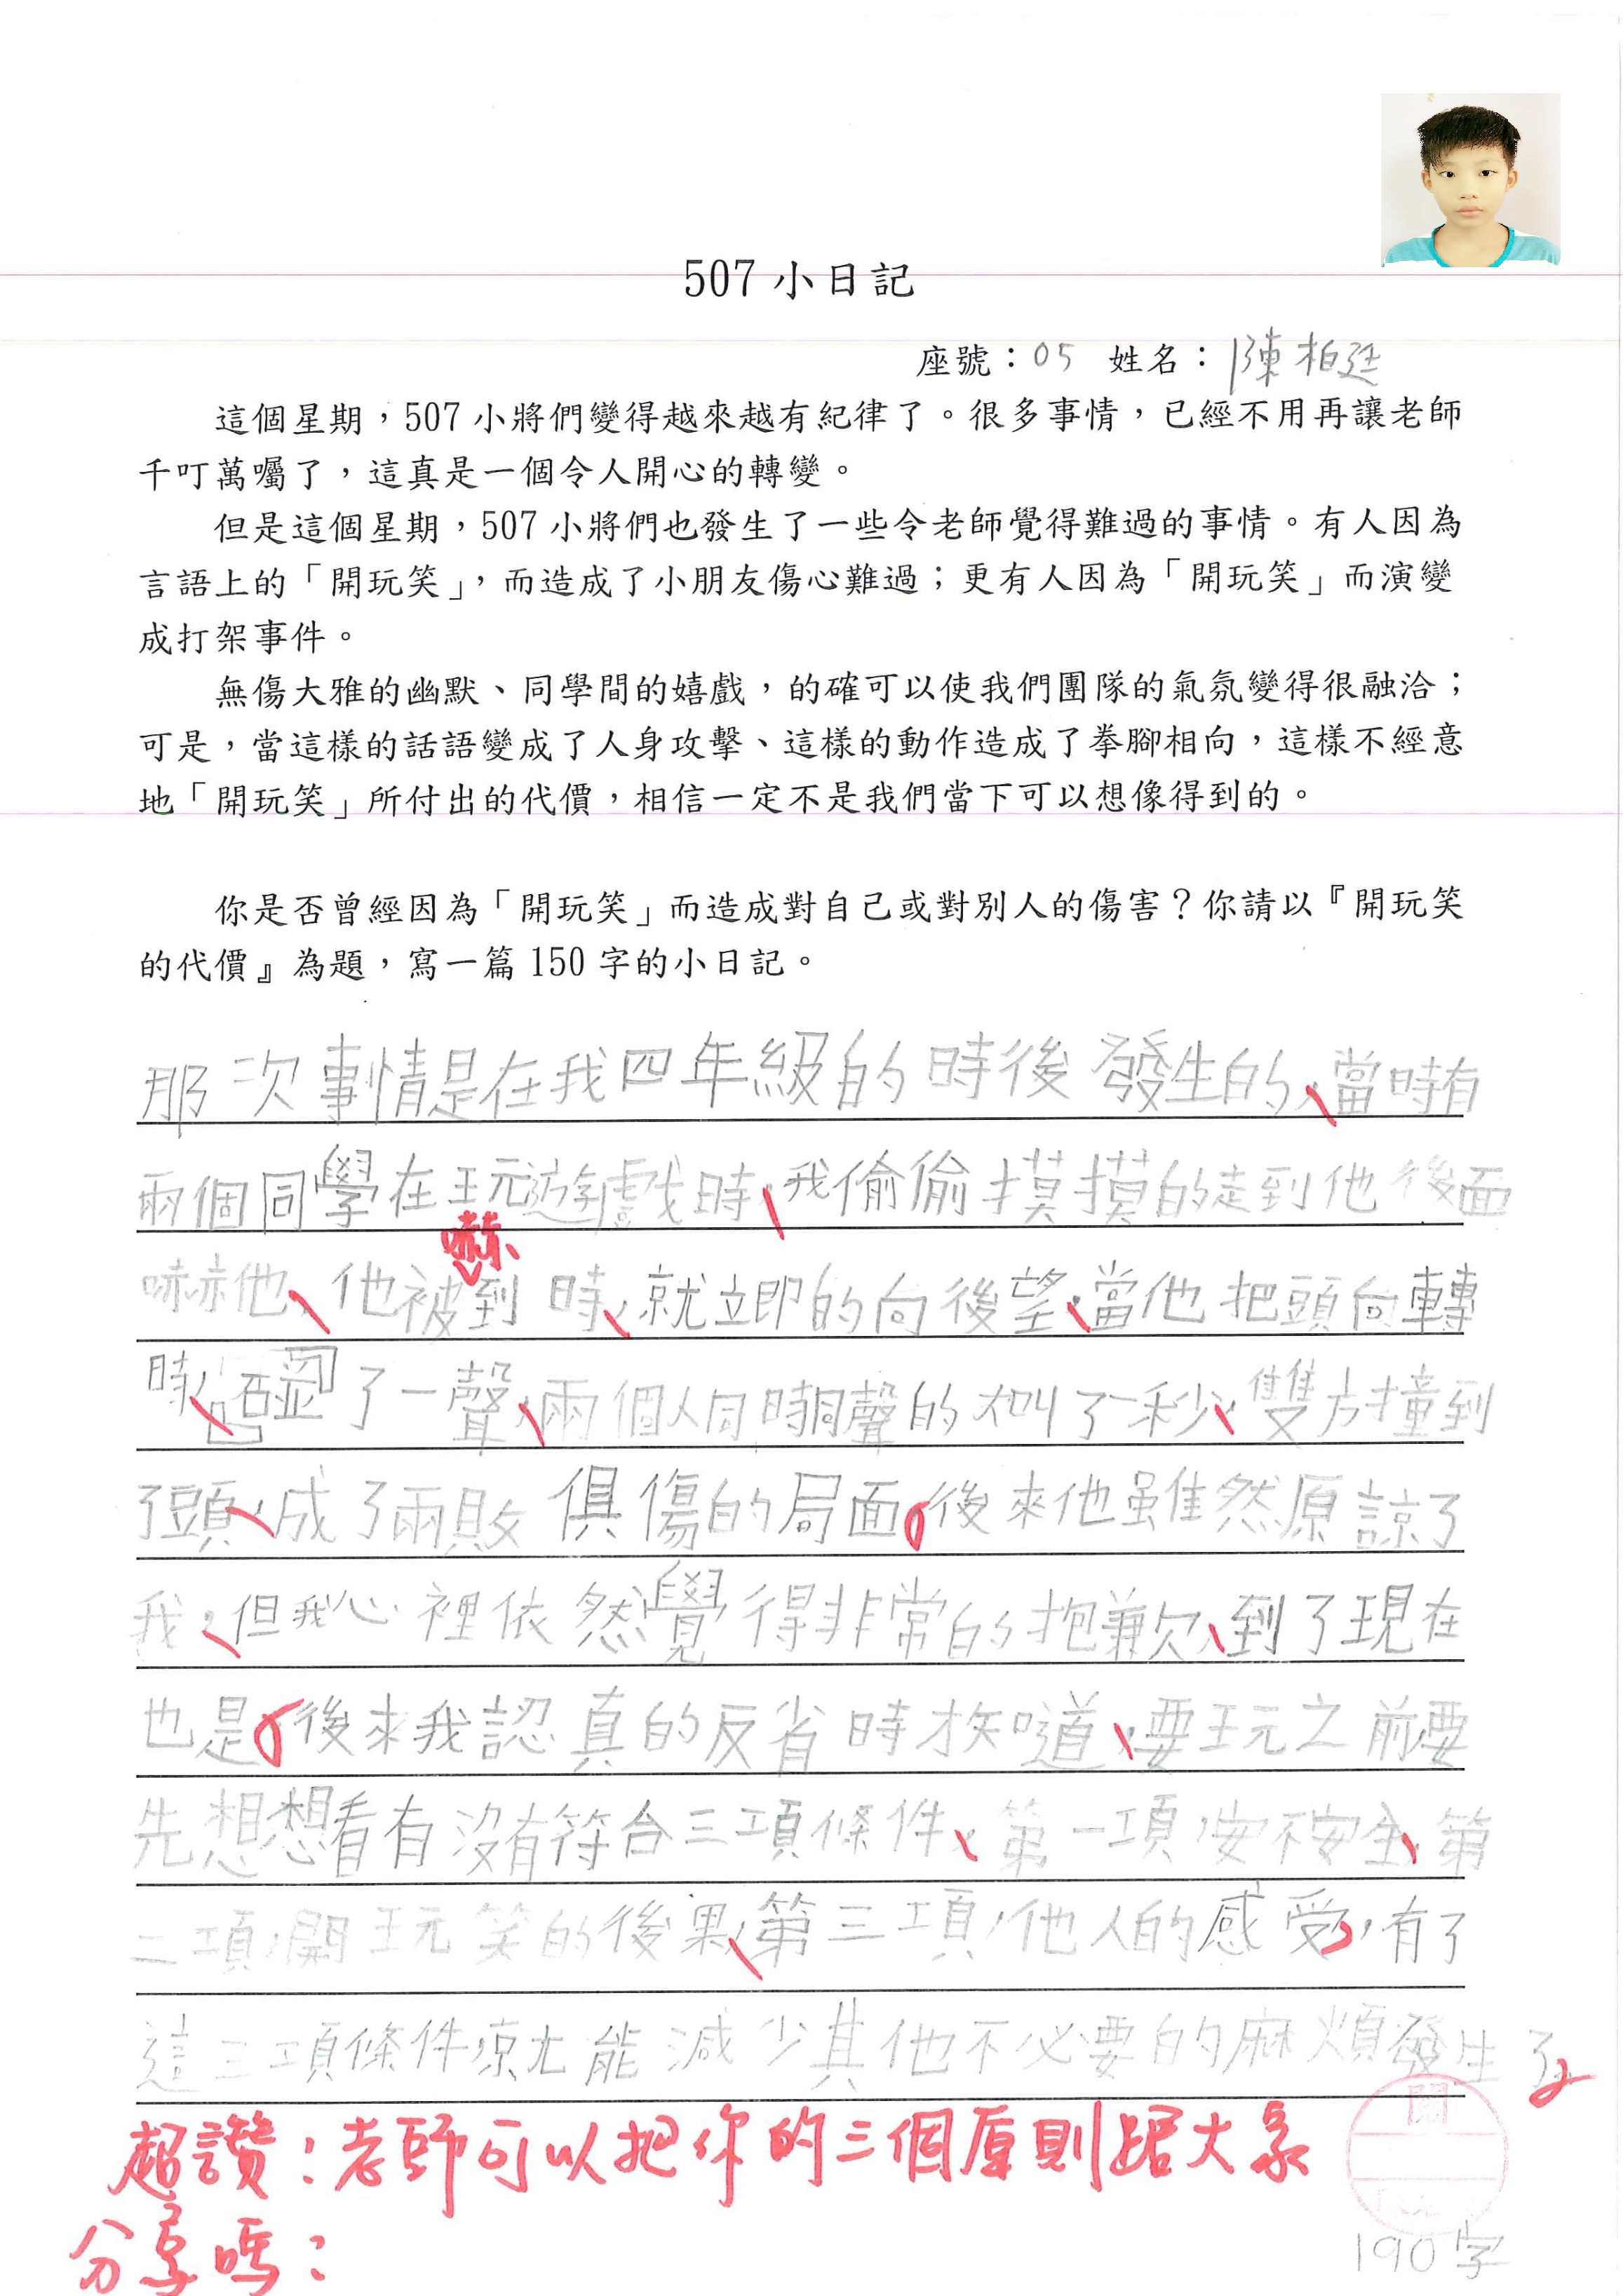 507 小日記
座號：05 姓名：陳柏廷
這個星期，507 小將們變得越來越有紀律了。很多事情，已經不用再讓老師
千叮萬囑了，這真是一個令人開心的轉變。
但是這個星期，507 小將們也發生了一些令老師覺得難過的事情。有人因為
言語上的「開玩笑」，而造成了小朋友傷心難過；更有人因為「開玩笑」而演變
成打架事件。
無傷大雅的幽默、同學間的嬉戲，的確可以使我們團隊的氣氛變得很融洽；
可是，當這樣的話語變成了人身攻擊、這樣的動作造成了拳腳相向，這樣不經意
地「開玩笑」所付出的代價，相信一定不是我們當下可以想像得到的。
你是否曾經因為「開玩笑」而造成對自己或對別人的傷害？你請以『開玩笑
的代價』為題，寫一篇 150 字的小日記。
那次事情是在我四年級的時後發生的，當時有
兩個同學在玩遊戲時，我偷偷摸摸的走到他後面
嚇他，他被嚇到時，就立即的向後望，當他把頭向轉
時，「碰」了一聲，兩個人同時同聲的大叫了一秒，雙方撞到
了頭，成了兩敗俱傷的局面。後來他雖然原諒了
我，但我心裡依然覺得非常的抱歉，到了現在
也是。後來我認真的反省時才知道，要玩之前要
先想想看有沒有符合三項條件，第一項，安不安全，第
二項，開玩笑的後果，第三項，他人的感受，有了
這三項條件就能減少其他不必要的麻煩發生了。
超讚！老師可以把你的三個原則跟大家
分享嗎？
閱
190字